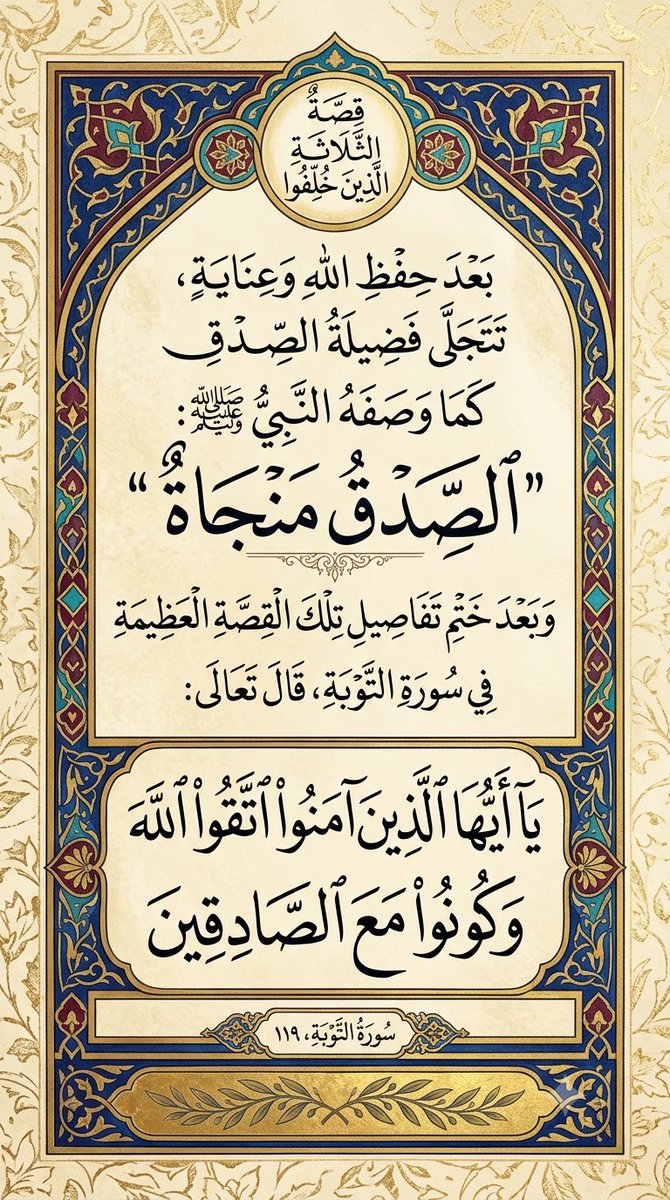 قِصَّةُ
الثَّلَاثَةِ
الَّذِينَ خُلِّفُوا
بَعْدَ حِفْظِ اللهِ وَعِنَايَةٍ،
تَتَجَلَّى فَضِيلَةُ الصِّدْقِ
كَمَا وَصَفَهُ النَّبِيُّ ﷺ:
”ٱلصِّدْقُ مَنْجَاةٌ“
وَبَعْدَ خَتْمِ تَفَاصِيلِ تِلْكَ الْقِصَّةِ الْعَظِيمَةِ
فِي سُورَةِ التَّوْبَةِ، قَالَ تَعَالَى:
يَآ أَيُّهَا ٱلَّذِينَ آمَنُواْ ٱتَّقُواْ ٱللَّهَ
وَكُونُواْ مَعَ ٱلصَّادِقِينَ
سُورَةُ التَّوْبَةِ، ١١٩